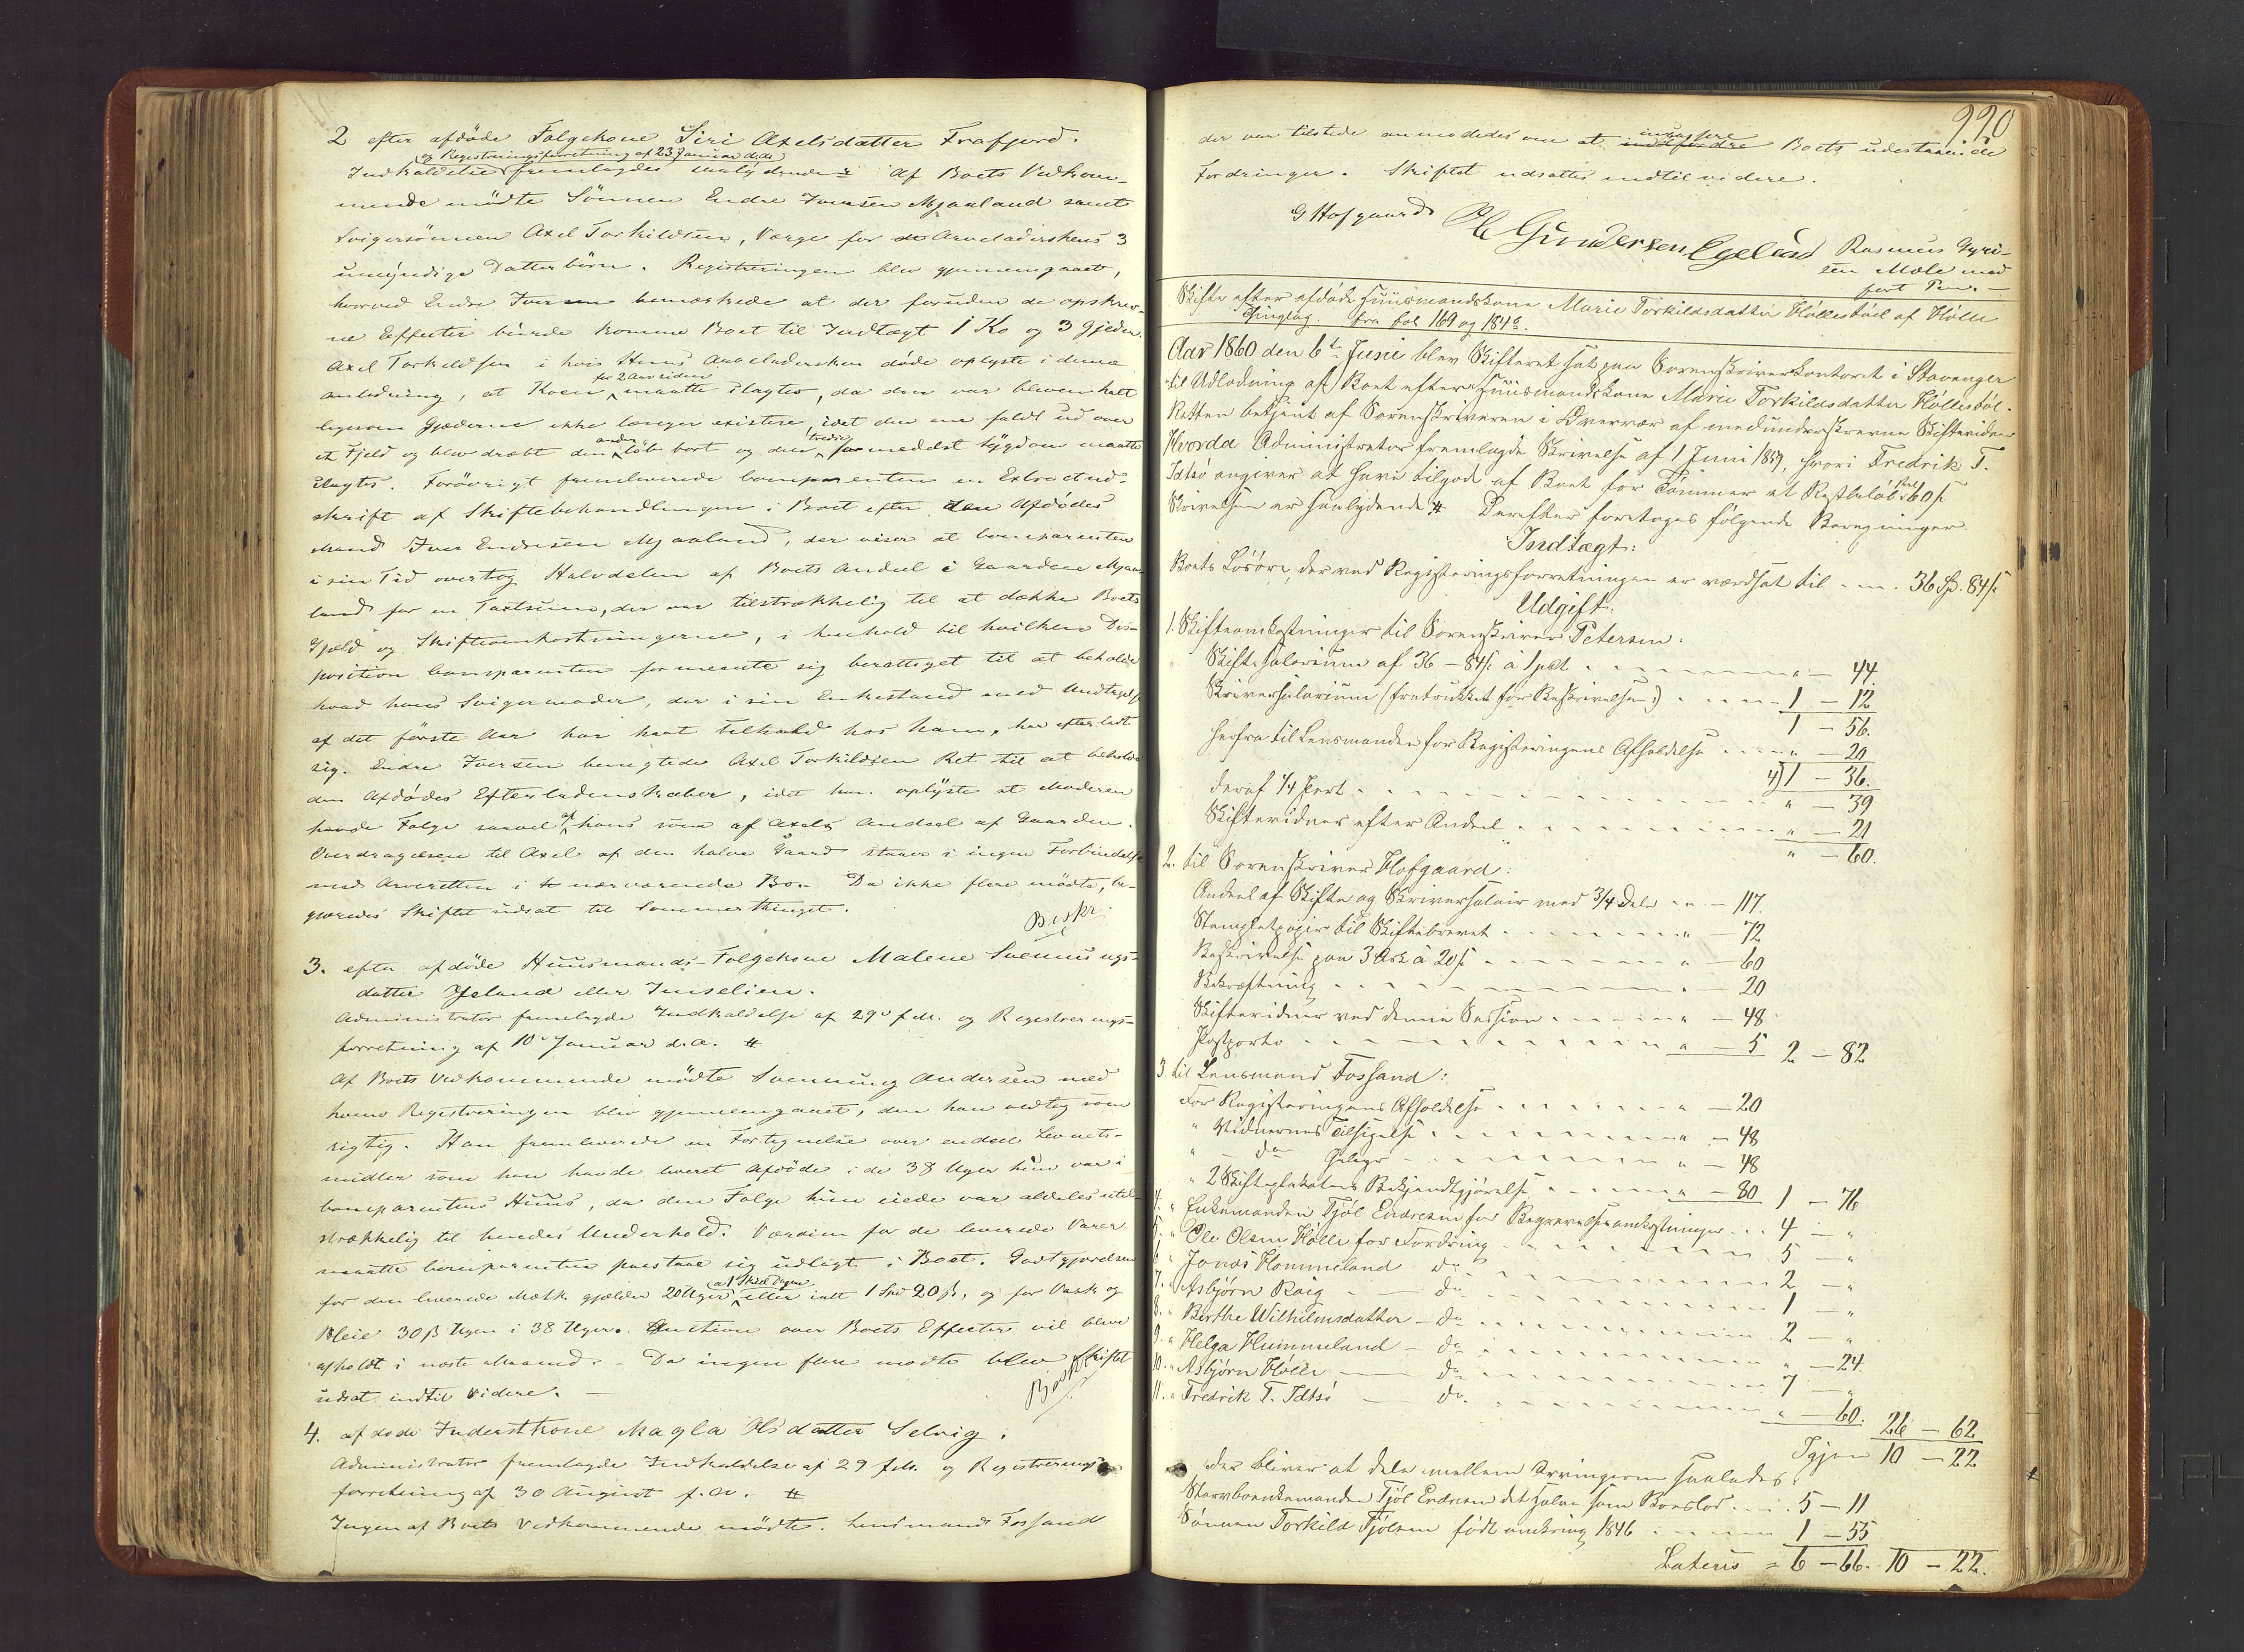 2 efter afdøde Folgekone Siri Axelsdatter Frafjord.
og Registreringsforretning af 23 Januar d.a.
Indkaldelse fremlagdes saalydende # Af Boets Vedkom-
mende mødte Sønnen Endre Iversen Mjaaland samt
Svigersønnen Axel Torkildsen, Værge for Arveladerskens 3
umyndige Datterbørn. Registreringen blev gjennemgaaet,
hvorved Endre Iversen bemærkede at der foruden de opskrev-
ne Effecter burde komme Boet til Indtægt 1 Ko og 3 Gjeder.
Axel Torkildsen i hvis Huus Arveladersken døde oplyste i denne
for 2 Aar siden
anledning, at Koen maatte slagtes, da den var bleven halt
ligesom Gjederne ikke længer existere, idet den ene faldt ud over
anden tredie
et Fjeld og blev dræbt den løb bort og den formedelst sygdom maatte
slagtes. Forøvrigt fremleverede comparenten en Extractud-
skrift af Skiftebehandlingen i Boet efter den Afdødes
Mand Iver Endresen Mjaaland, der viser at comparenten
i sin Tid overtog Halvdelen af Boets Andeel i Gaarden Mjaa-
land for en Taxtsum, der var tilstrækkelig til at dække Boets
Gjæld og Skifteomkostningerne, i henhold til hvilken Dis-
position comparenten formente sig berettiget til at beholde
hvad hans Svigermoder, der i sin Enkestand med Undtagelse
af det første Aar har havt tilhold hos ham, har efterladt
sig. Endre Iversen benegtede Axel Torkildsen Ret til at beholde
den Afdødes Efterladenskaber, idet han oplyste at Moderen
havde Folge saavel af hans som af Axels Andeel af Gaarden.
Overdragelsen til Axel af den halve Gaard staaer i ingen Forbindelse
med Arveretten i nærværende Bo. Da ikke flere mødte, be-
gjæredes Skiftet udsat til Sommerthinget.
Beskr.
3. efter afdøde Huusmands-Folgekone Malene Svennings-
datter Ims­elien.
Administrator fremlagde Indkaldelse af 29 f.M. og Registrerings-
forretning af 10 Januar d.a. #
Af Boets Vedkommende mødte Svenning Andersen med
hvem Registreringen blev gjennemgaaet, den han vedtog som
rigtig. Han fremleverede en Fortegnelse over endeel Levnets-
midler som han havde leveret Afdøde i de 38 Uger hun var i
comparentens Huus, da den Folge hun eiede var aldeles util-
strækkelig til hendes Underhold. Værdien for de leverede Varer
maatte comparenten paastaae sig udlagt i Boet. Godtgjørelsen
a 1 Skill Dagen
for den leverede Mælk gjælder 20 Uger eller ialt 1 Spd 20 ß, og for Vask og
Pleie 30 ß Ugen i 38 Uger. Auction over Boets Effecter vil blive
afholdt i næste Maaned. - Da ingen flere mødte blev Skiftet
udsat indtil Videre. -
Beskr.
4. afdøde Inderstkone Magla Olsdatter Selvig.
Administrator fremlagde Indkaldelse af 29 f.M. og Registrerings-
forretning af 30 August f.A. #
Ingen af Boets Vedkommende mødte. Lensmand Fossand
220
der var tilstede anmodedes om at inddrive Boets udestaaende
Fordringer. Skiftet udsattes indtil videre.
G Hofgaard Gundersen Egeland Rasmus Gyri-
sen Mæle med
ført Pen. -
Skifte efter afdøde Huusmandskone Marie Torkildsdatter Høllesbøl af Hølle
Tinglag. fra fol 169 og 184 b.
Aar 1860 den 6te Juni blev Skifteret sat paa Sorenskriverkontoret i Stavanger
til Udlodning af Boet efter Huusmandskone Marie Torkildsdatter Høllesbøl.
Retten betjent af Sorenskriveren i Overvær af medunderskrevne Skiftevidner
Hvorda Administrator fremlagde Skrivelse af 1 Juni 1859, hvori Fredrik T.
Idtsø angiver at have tilgode af Boet for Tømmer et Restbeløb 60 ß
Skrivelsen er saalydende # Derefter foretoges følgende Beregninger.
Indtægt:
Boets Løsøre, der ved Registreringsforretningen er værdsat til - - . 36 Sp. 84 ß
Udgift:
1. Skifteomkostninger til Sorenskriver Petersen.
Skiftesalarium af 36 - 84 ß à 1 pCt . - - - " - 44.
Skriversalarium (fratrukket for Beskrivelsen) . . - - 1 - 12.
1 - 56.
herfra til Lensmanden for Registreringens Afholdelse . - - " - 20
4) 1 - 36.
deraf 1/4 Part . - - - " - 39
Skiftevidner efter Andeel . - - - " - 21
" - 60.
2. til Sorenskriver Hofgaard:
Andeel af Skifte og Skriversalair med 3/4 Dele - - - 117.
Stempletpapir til Skiftebrevet . - - - " - 72
Beskrivelse paa 3 Ark à 20 ß . - - - " - 60
Bekræftning . - - - " - 20
Skiftevidner ved denne Session . - - - " - 48
Postporto - - - " - 5 2 - 82
3. til Lensmand Fossand:
For Registreringens Afholdelse . - - - " - 20
" Vidnernes Tilsigelse . - - - " - 48
" - do Gebyr - - - " - 48
" 2 Skifteplakaters Bekjendtgjørelse . - - - " - 80 1 - 76
4. " Enkemanden Tjøl Endresen for Begravelsesomkostninger . . 4 - "
5. " Ole Olsen Hølle for Fordring - - - 5 - "
6. " Jonas Hommeland do - - - 2 - "
7. " Asbjørn Roig - do - - - 1 - "
8. " Berthe Wilhelmsdatter - do - - - 2 - "
9. " Helga Hummeland - do - - - " - 24.
10. " Asbjørn Hølle - do - - - 7 - "
11. " Fredrik T. Idtsø - do - - - " - 60. 26 - 62
Igjen 10 - 22
der bliver at dele mellem Arvingerne saaledes:
Stervboenkemanden Tjøl Endresen det halve som Boeslod . . . 5 - 11
Sønnen Torkild Tjølsen født omkring 1846 . - - - 1 - 55
Lateris = 6 - 66. 10 - 22.